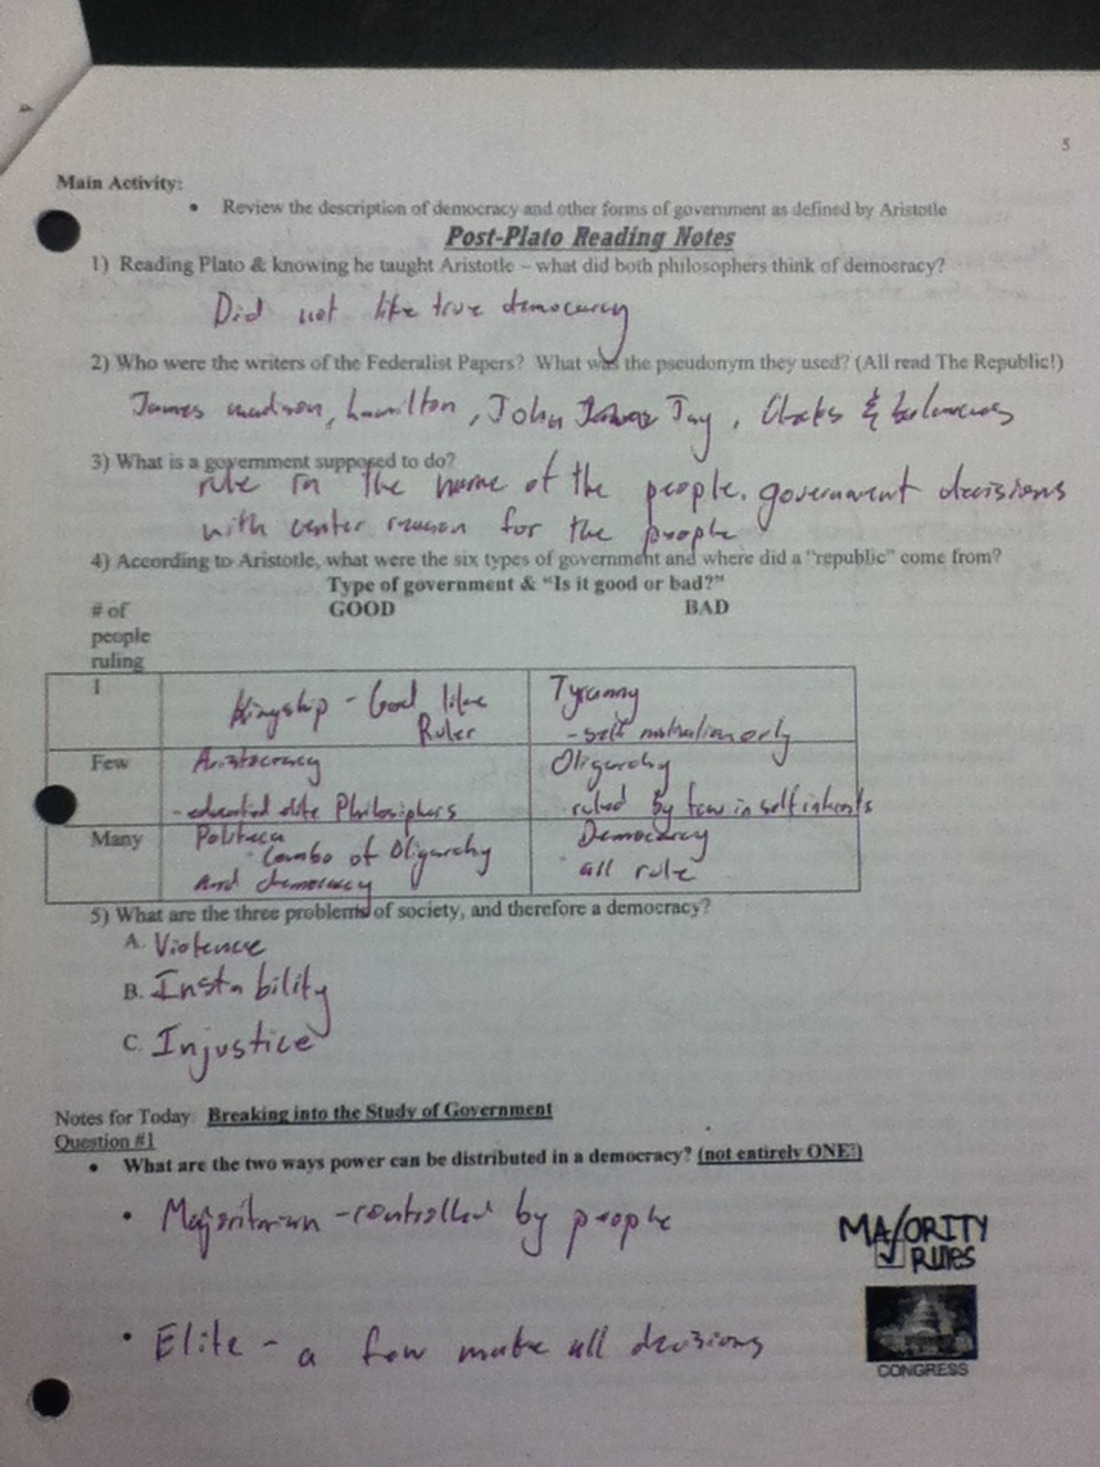 5
Main Activity:
• Review the description of democracy and other forms of government as defined by Aristotle
Post-Plato Reading Notes
1) Reading Plato & knowing he taught Aristotle – what did both philosophers think of democracy?
Did not like true democracy
2) Who were the writers of the Federalist Papers? What was the pseudonym they used? (All read The Republic!)
James madison, hamilton, John Jay, Checks & balances
3) What is a government supposed to do?
rule in the name of the people. government decisions
with center reason for the people
4) According to Aristotle, what were the six types of government and where did a "republic" come from?
Type of government & "Is it good or bad?"
# of GOOD BAD
people
ruling
1 Kingship - God like Tyranny
Ruler - self only
Few Aristocracy Oligarchy
- educated elite Philosiphers ruled by few in self
Many Politaea Democracy
Combo of Oligarchy all rule
And democracy
5) What are the three problems of society, and therefore a democracy?
A. Violence
B. Instability
C. Injustice
Notes for Today: Breaking into the Study of Government
Question #1
• What are the two ways power can be distributed in a democracy? (not entirely ONE!)
• Majoritarian - controlled by people
MAJORITY
RULES
• Elite - a few make all decisions
CONGRESS